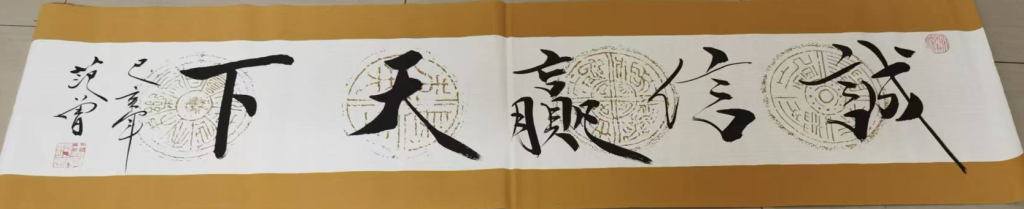 誠信贏天下
己亥年
范曾